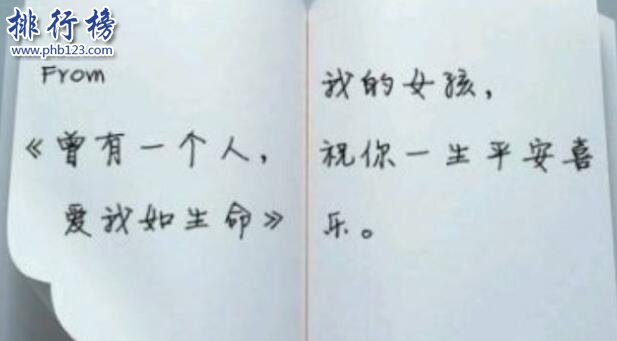 排行榜
www.phb123.com
From
《曾有一个人,
爱我如生命》
我的女孩,
祝你一生平安喜
乐。